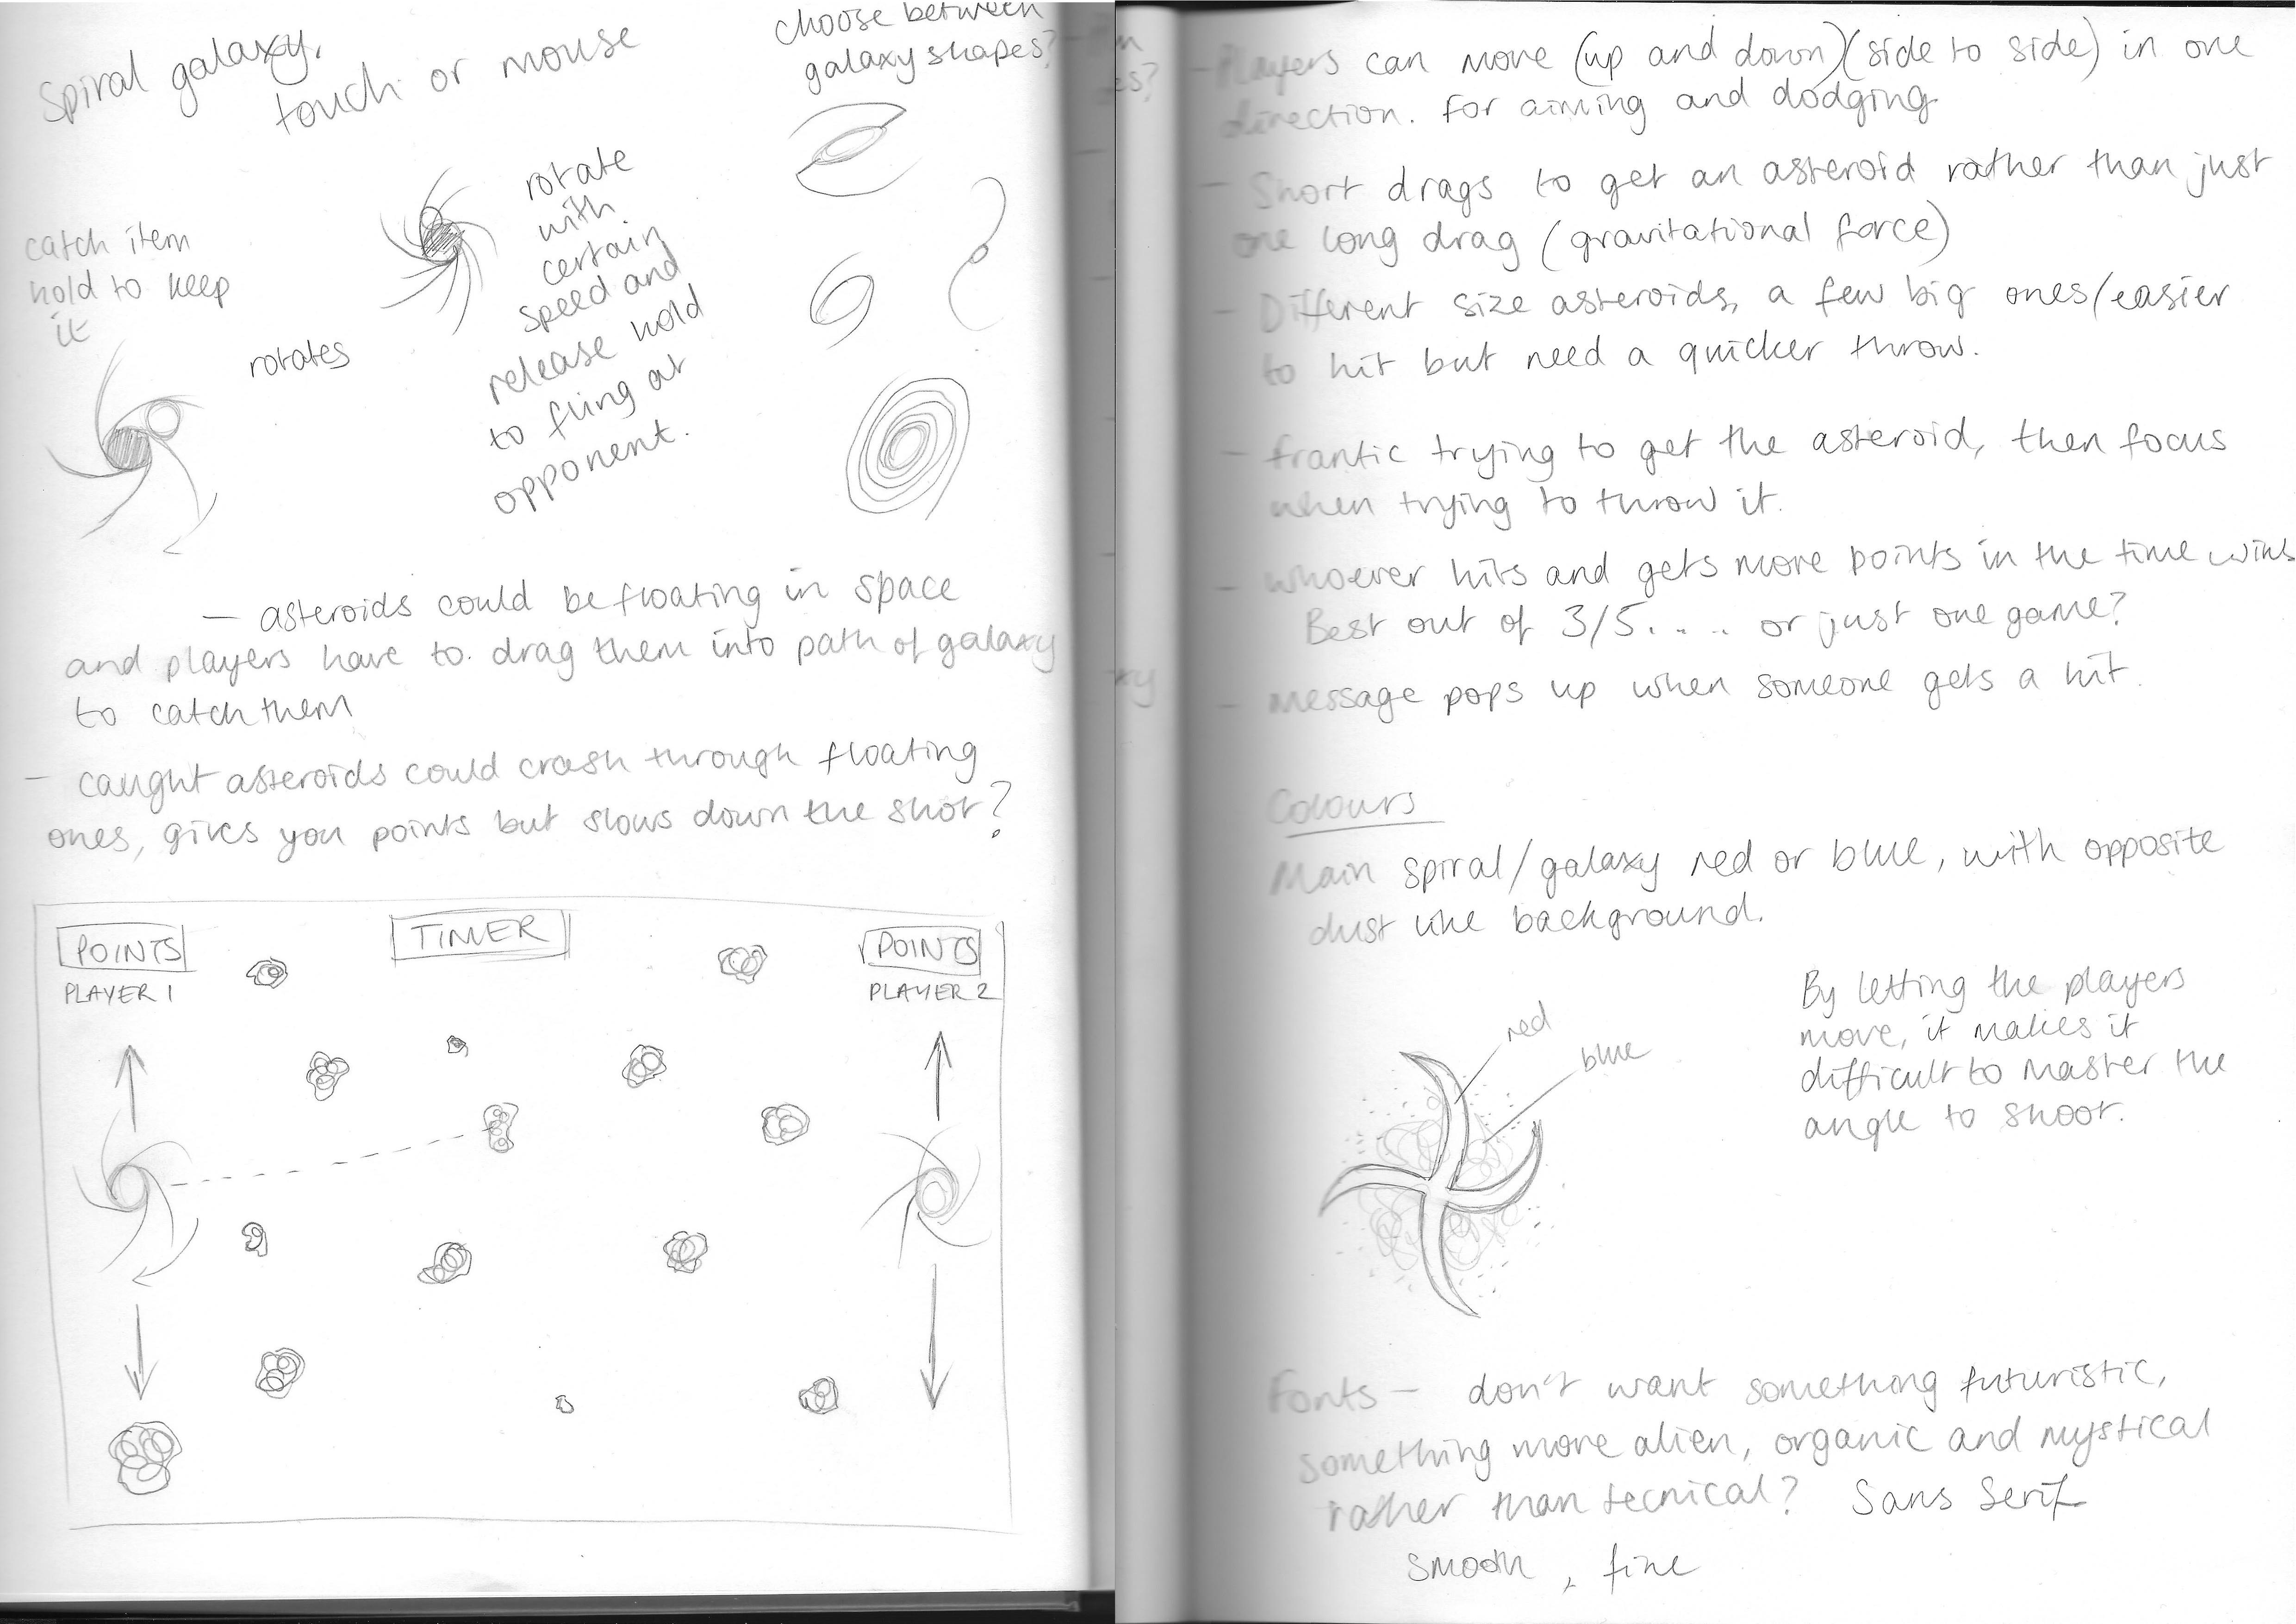 Spiral galaxy,
touch or mouse
choose between
galaxy shapes?
catch item
hold to keep
it
rotates
rotate
with
certain
speed and
release hold
to fling at
opponent.
- asteroids could be floating in space
and players have to drag them into path of galaxy
to catch them
- caught asteroids could crash through floating
ones, gives you points but slows down the shot?
POINTS
PLAYER 1
TIMER
POINTS
PLAYER 2
es?
xy
- Players can move (up and down)(side to side) in one
direction. for aiming and dodging
- Short drags to get an asteroid rather than just
one long drag (gravitational force)
- Different size asteroids, a few big ones/easier
to hit but need a quicker throw.
- frantic trying to get the asteroid, then focus
when trying to throw it.
- whoever hits and gets more points in the time wins
Best out of 3/5. . . . or just one game?
- message pops up when someone gets a hit.
Colours
Main spiral/galaxy red or blue, with opposite
dust like background.
red
blue
By letting the players
move, it makes it
difficult to master the
angle to shoot.
Fonts - don't want something futuristic,
something more alien, organic and mystical
rather than tecnical? Sans Serif
smooth, fine